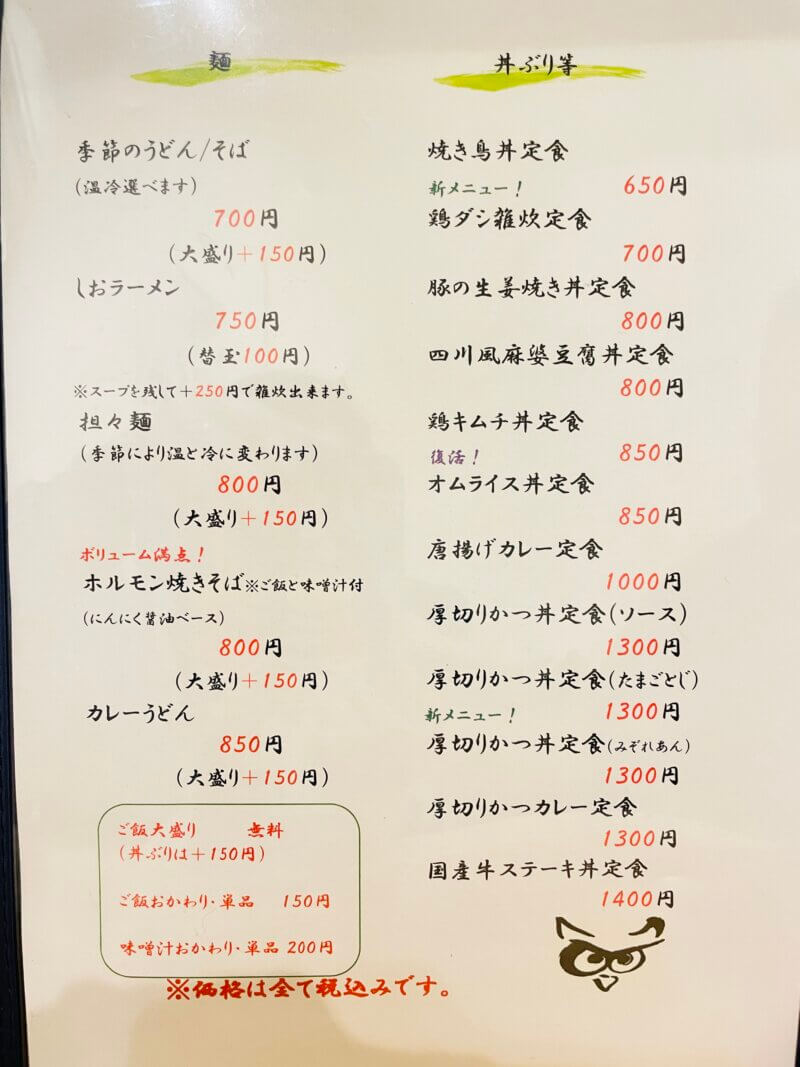 麺
季節のうどん/そば
(温冷選べます)
700円
(大盛り+150円)
しおラーメン
750円
(替玉100円)
※スープを残して+250円で雑炊出来ます。
担々麺
(季節により温と冷に変わります)
800円
(大盛り+150円)
ボリューム満点!
ホルモン焼きそば※ご飯と味噌汁付
(にんにく醤油ベース)
800円
(大盛り+150円)
カレーうどん
850円
(大盛り+150円)
ご飯大盛り 無料
(丼ぶりは+150円)
ご飯おかわり・単品 150円
味噌汁おかわり・単品 200円
丼ぶり等
焼き鳥丼定食
650円
新メニュー!
鶏ダシ雑炊定食
700円
豚の生姜焼き丼定食
800円
四川風麻婆豆腐丼定食
800円
鶏キムチ丼定食
850円
復活!
オムライス丼定食
850円
唐揚げカレー定食
1000円
厚切りかつ丼定食(ソース)
1300円
厚切りかつ丼定食(たまごとじ)
1300円
新メニュー!
厚切りかつ丼定食(みぞれあん)
1300円
厚切りかつカレー定食
1300円
国産牛ステーキ丼定食
1400円
※価格は全て税込みです。